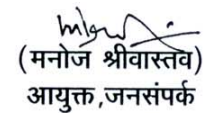 (मनोज श्रीवास्तव)
आयुक्त,जनसंपर्क